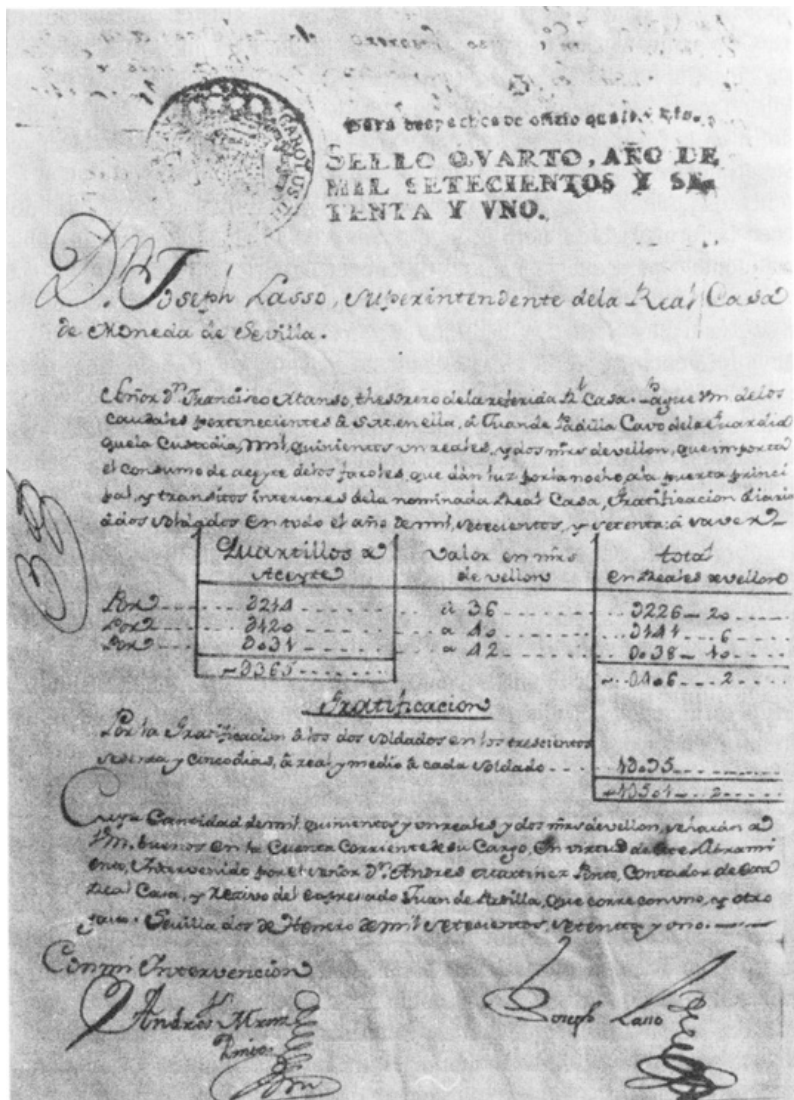 CAROLUS III
Para despachos de oficio quatro mrs.
SELLO QVARTO, AÑO DE
MIL SETECIENTOS Y SE-
TENTA Y VNO.
Dn. Joseph Lasso, Superintendente dela Real Casa
de Moneda de Sevilla.
Señor Dn. Francisco Alonso, thesorero dela referida Rl. Casa. Pague Vm. delos
caudales pertenecientes à S.M. en ella, à Juan de Padilla Cavo dela Guardia
quela Custodia, Mil, quinientos un reales, y dos mrs. de vellon, que importa
el consumo de aceyte delos faroles, que dàn luz porla noche, ala puerta princi
pal, y transitos interiores dela nominada Real Casa, Gratificacion diaria
à dos soldados en todo el año de mil, setecientos, y setenta: à saver
Quartillos de Aceyte
Valor en mrs. de vellon
total en Reales de vellon
Por ... 0214 ... à 36 ... 0226 - 20
Por ... 0120 ... a 40 ... 0141 - 6
Por ... 0031 ... a 42 ... 0038 - 10
0365 ... 0406 - 2
Gratificacion
Por la Gratificacion à los dos soldados en los trescientos
sesenta y cinco dias, à real y medio à cada soldado ... 1095
1501 - 2
Cuya Cantidad de mil quinientos y un reales y dos mrs. de vellon, se haràn à
Vm. buenos en la Cuenta Corriente de su Cargo, En virtud de este Librami
ento, Intervenido por el señor Dn. Andres Martinez Pinto, Contador de esta
Real Casa, y Recivo del expresado Juan de Padilla, que corre con uno, y otro
Sevilla dos de Henero de mil setecientos, setenta, y uno.
Con mi Intervencion
Andrès Mrnz
Pinto
Joseph Lasso